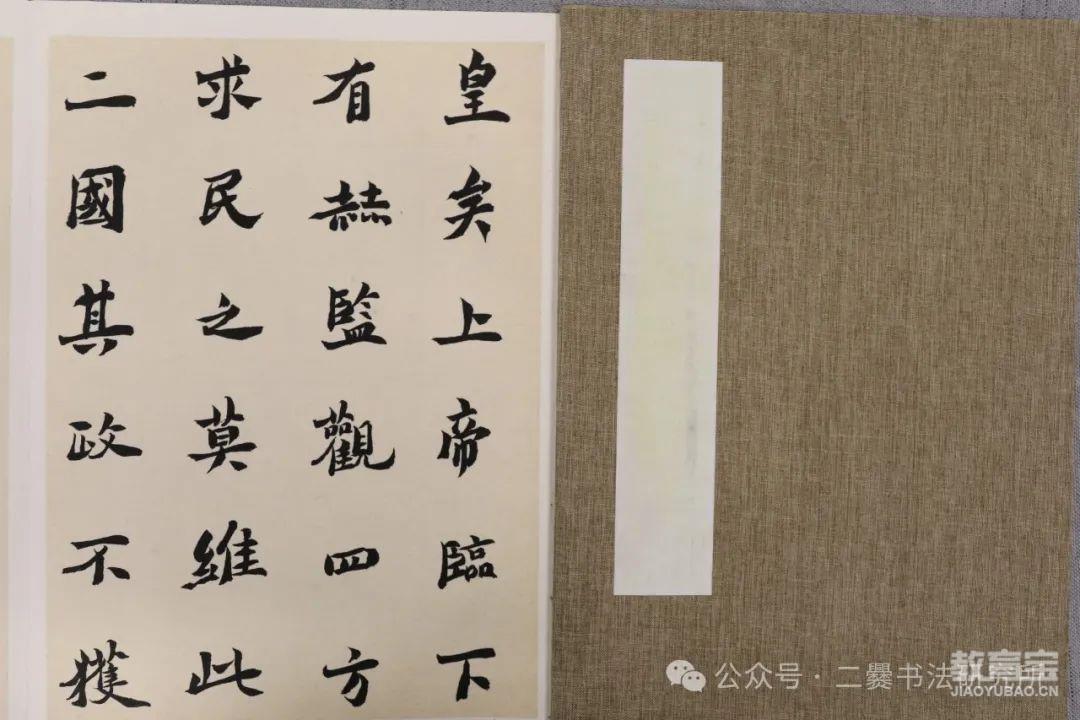 皇矣上帝臨下
有赫監觀四方
求民之莫維此
二國其政不獲
公众号·二爨书法研究所
教育宝
JIAOYUBAO.CN